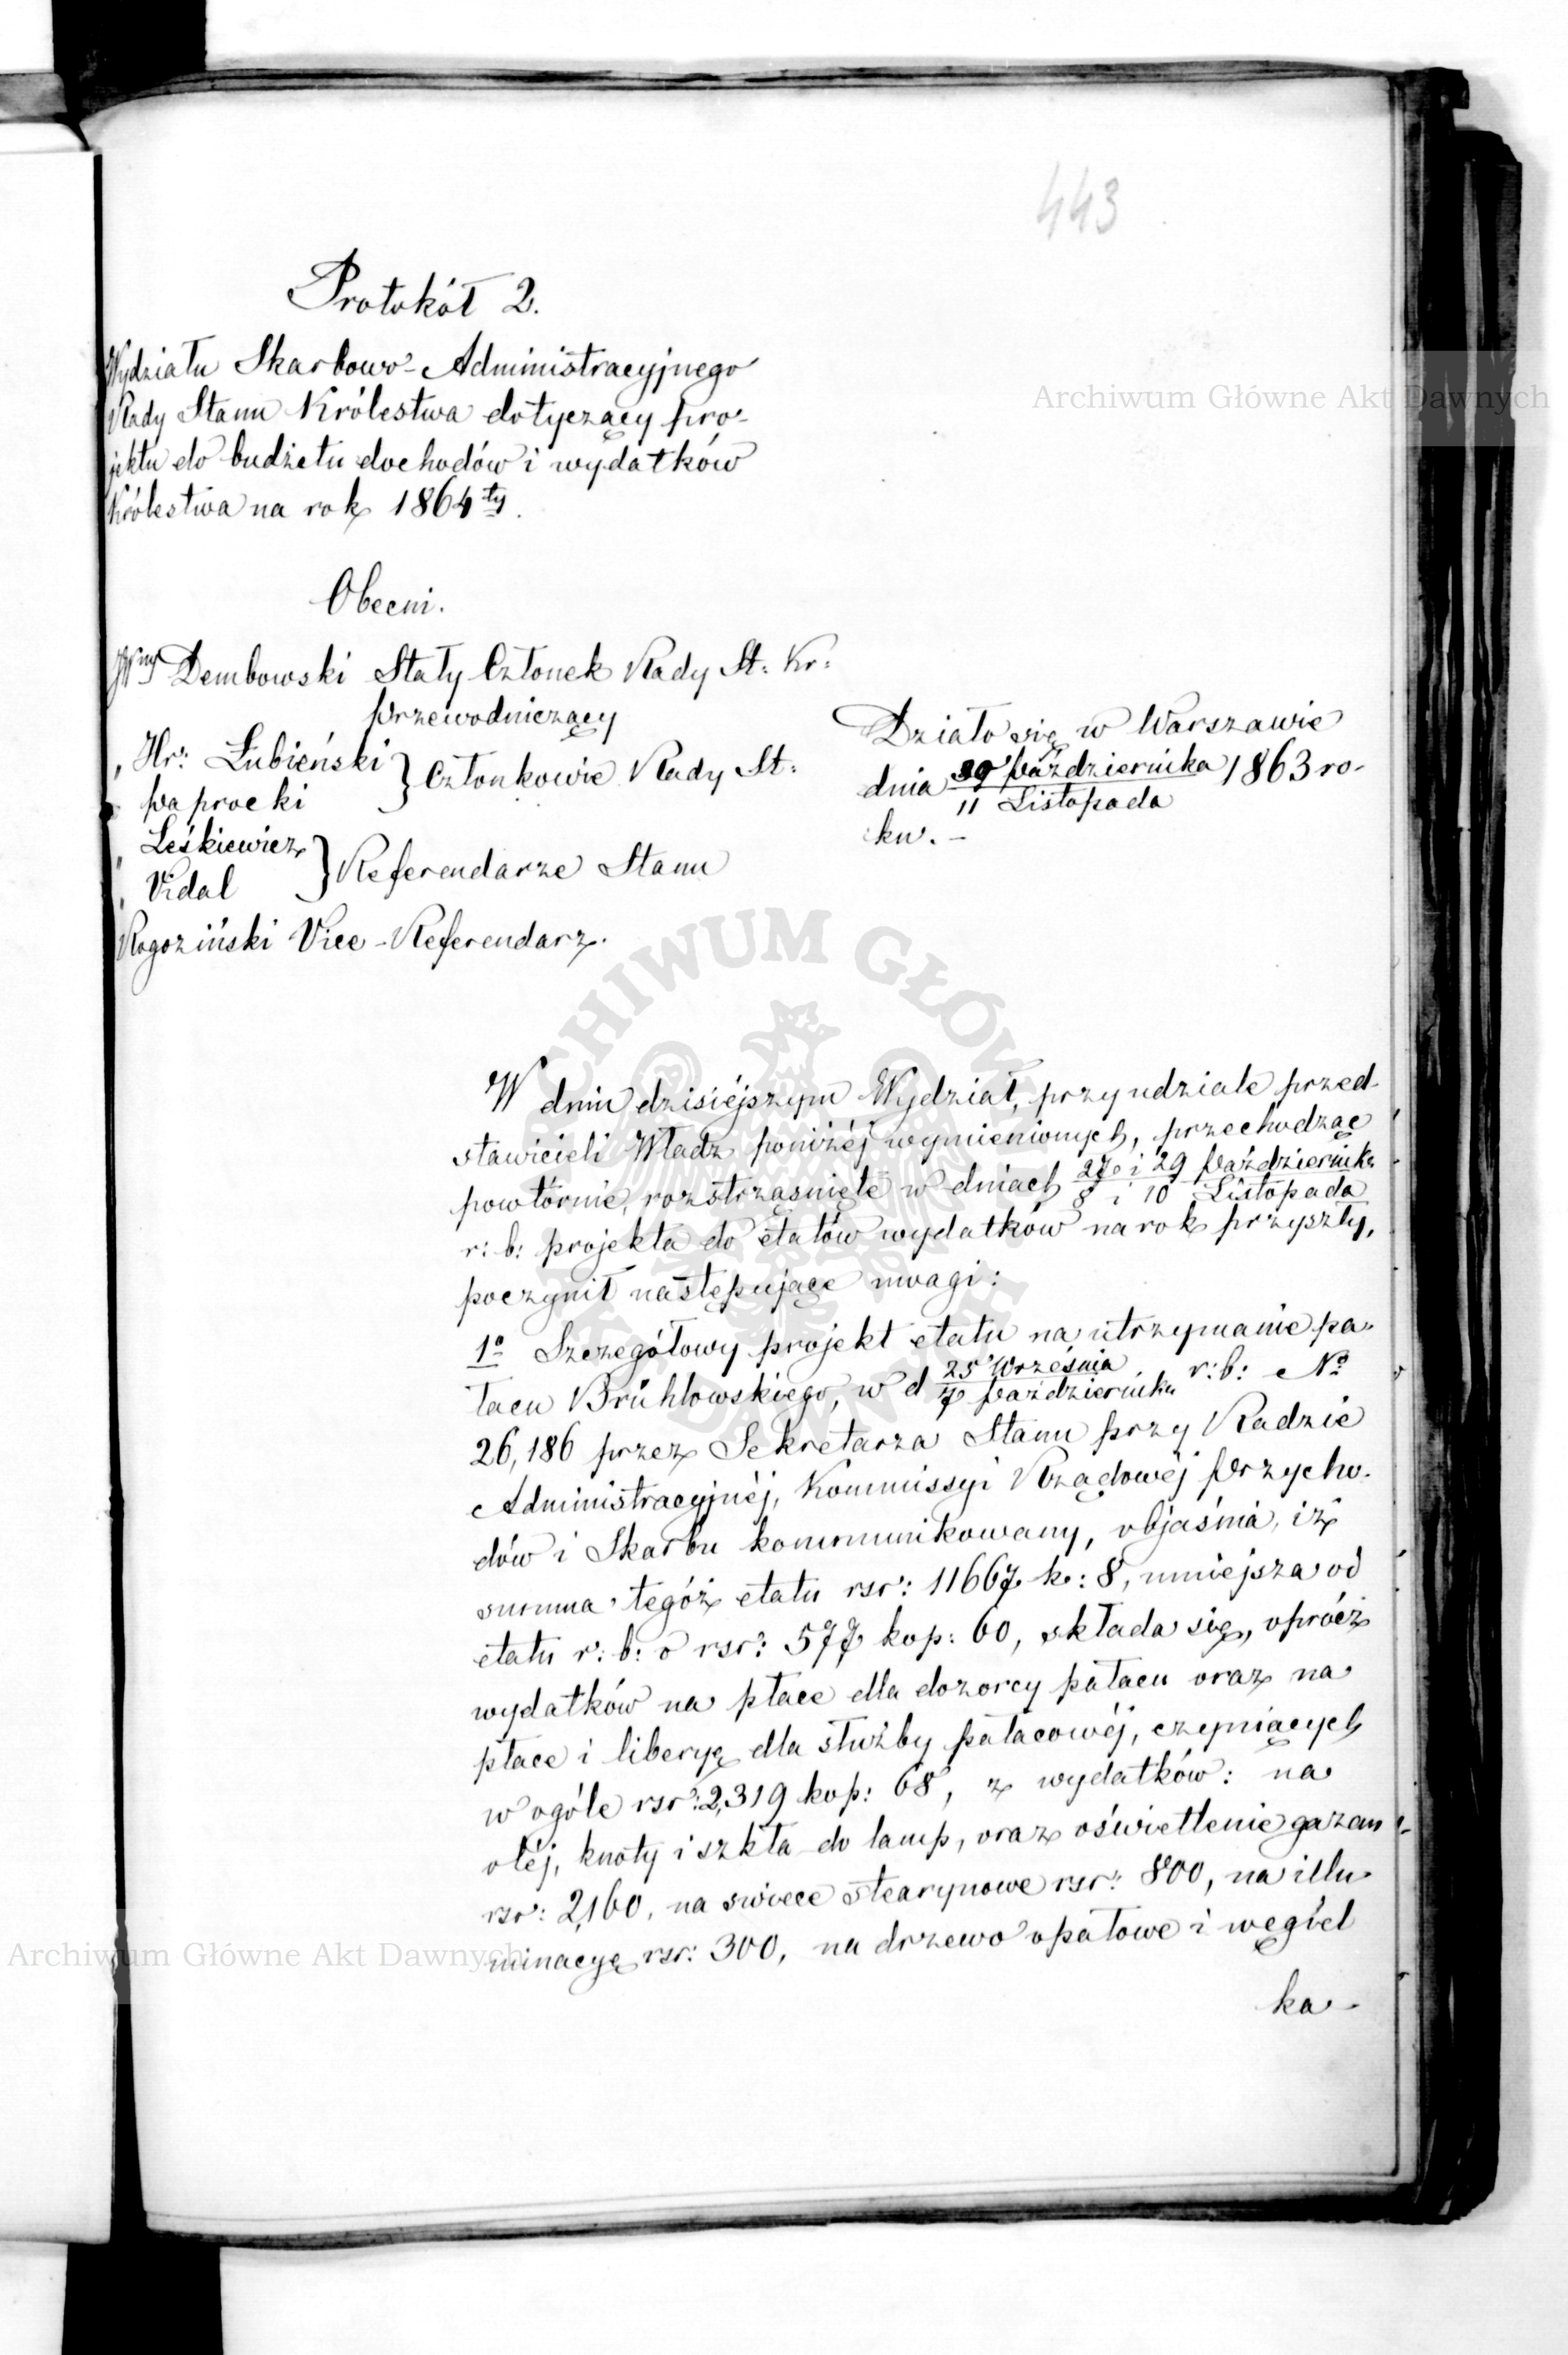 443
Protokół 2.
Wydziału Skarbowo-Administracyjnego
Rady Stanu Królestwa dotyczący pro-
jektu do budżetu dochodów i wydatków
Królestwa na rok 1864ty.
Obecni.
JWny Dembowski Stały Członek Rady St: Kr:
Przewodniczący
" Hr: Łubieński } Członkowie Rady St:
" Paprocki
" Leśkiewicz } Referendarze Stanu
" Vidal
Rogoziński Vice-Referendarz.
Działo się w Warszawie
dnia 30 Października / 11 Listopada 1863 ro-
ku. –
W dniu dzisiéjszym Wydział, przy udziale przed-
stawicieli Władz poniżéj wymienionych, przechodząc
powtórnie, roztrząśnięte w dniach 27 i 29 Października / 8 i 10 Listopada
r: b: projekta do etatów wydatków na rok przyszły,
poczynił następujące uwagi:
1o Szczegółowy projekt etatu na utrzymanie pa-
łacu Brühlowskiego, w d 25 Września / 7 Października r: b: No
26,186 przez Sekretarza Stanu przy Radzie
Administracyjnéj, Kommissyi Rządowéj Przycho-
dów i Skarbu kommunikowany, objaśnia, iż
summa tegóż etatu rsr: 11667 k: 8, mniejsza od
etatu r: b: o rsr: 577 kop: 60, składa się, oprócz
wydatków na płace dla dozorcy pałacu oraz na
płace i liberyę dla służby pałacowéj, czyniących
w ogóle rsr: 2,319 kop: 68, z wydatków: na
oléj, knoty i szkła do lamp, oraz oświetlenie gazem
rsr: 2,160, na swiece stearynowe rsr: 800, na illu-
minacyę rsr: 300, na drzewo opałowe i węgiel
ka-
Archiwum Główne Akt Dawnych
ARCHIWUM GŁÓWNE AKT DAWNYCH
Archiwum Główne Akt Dawnych